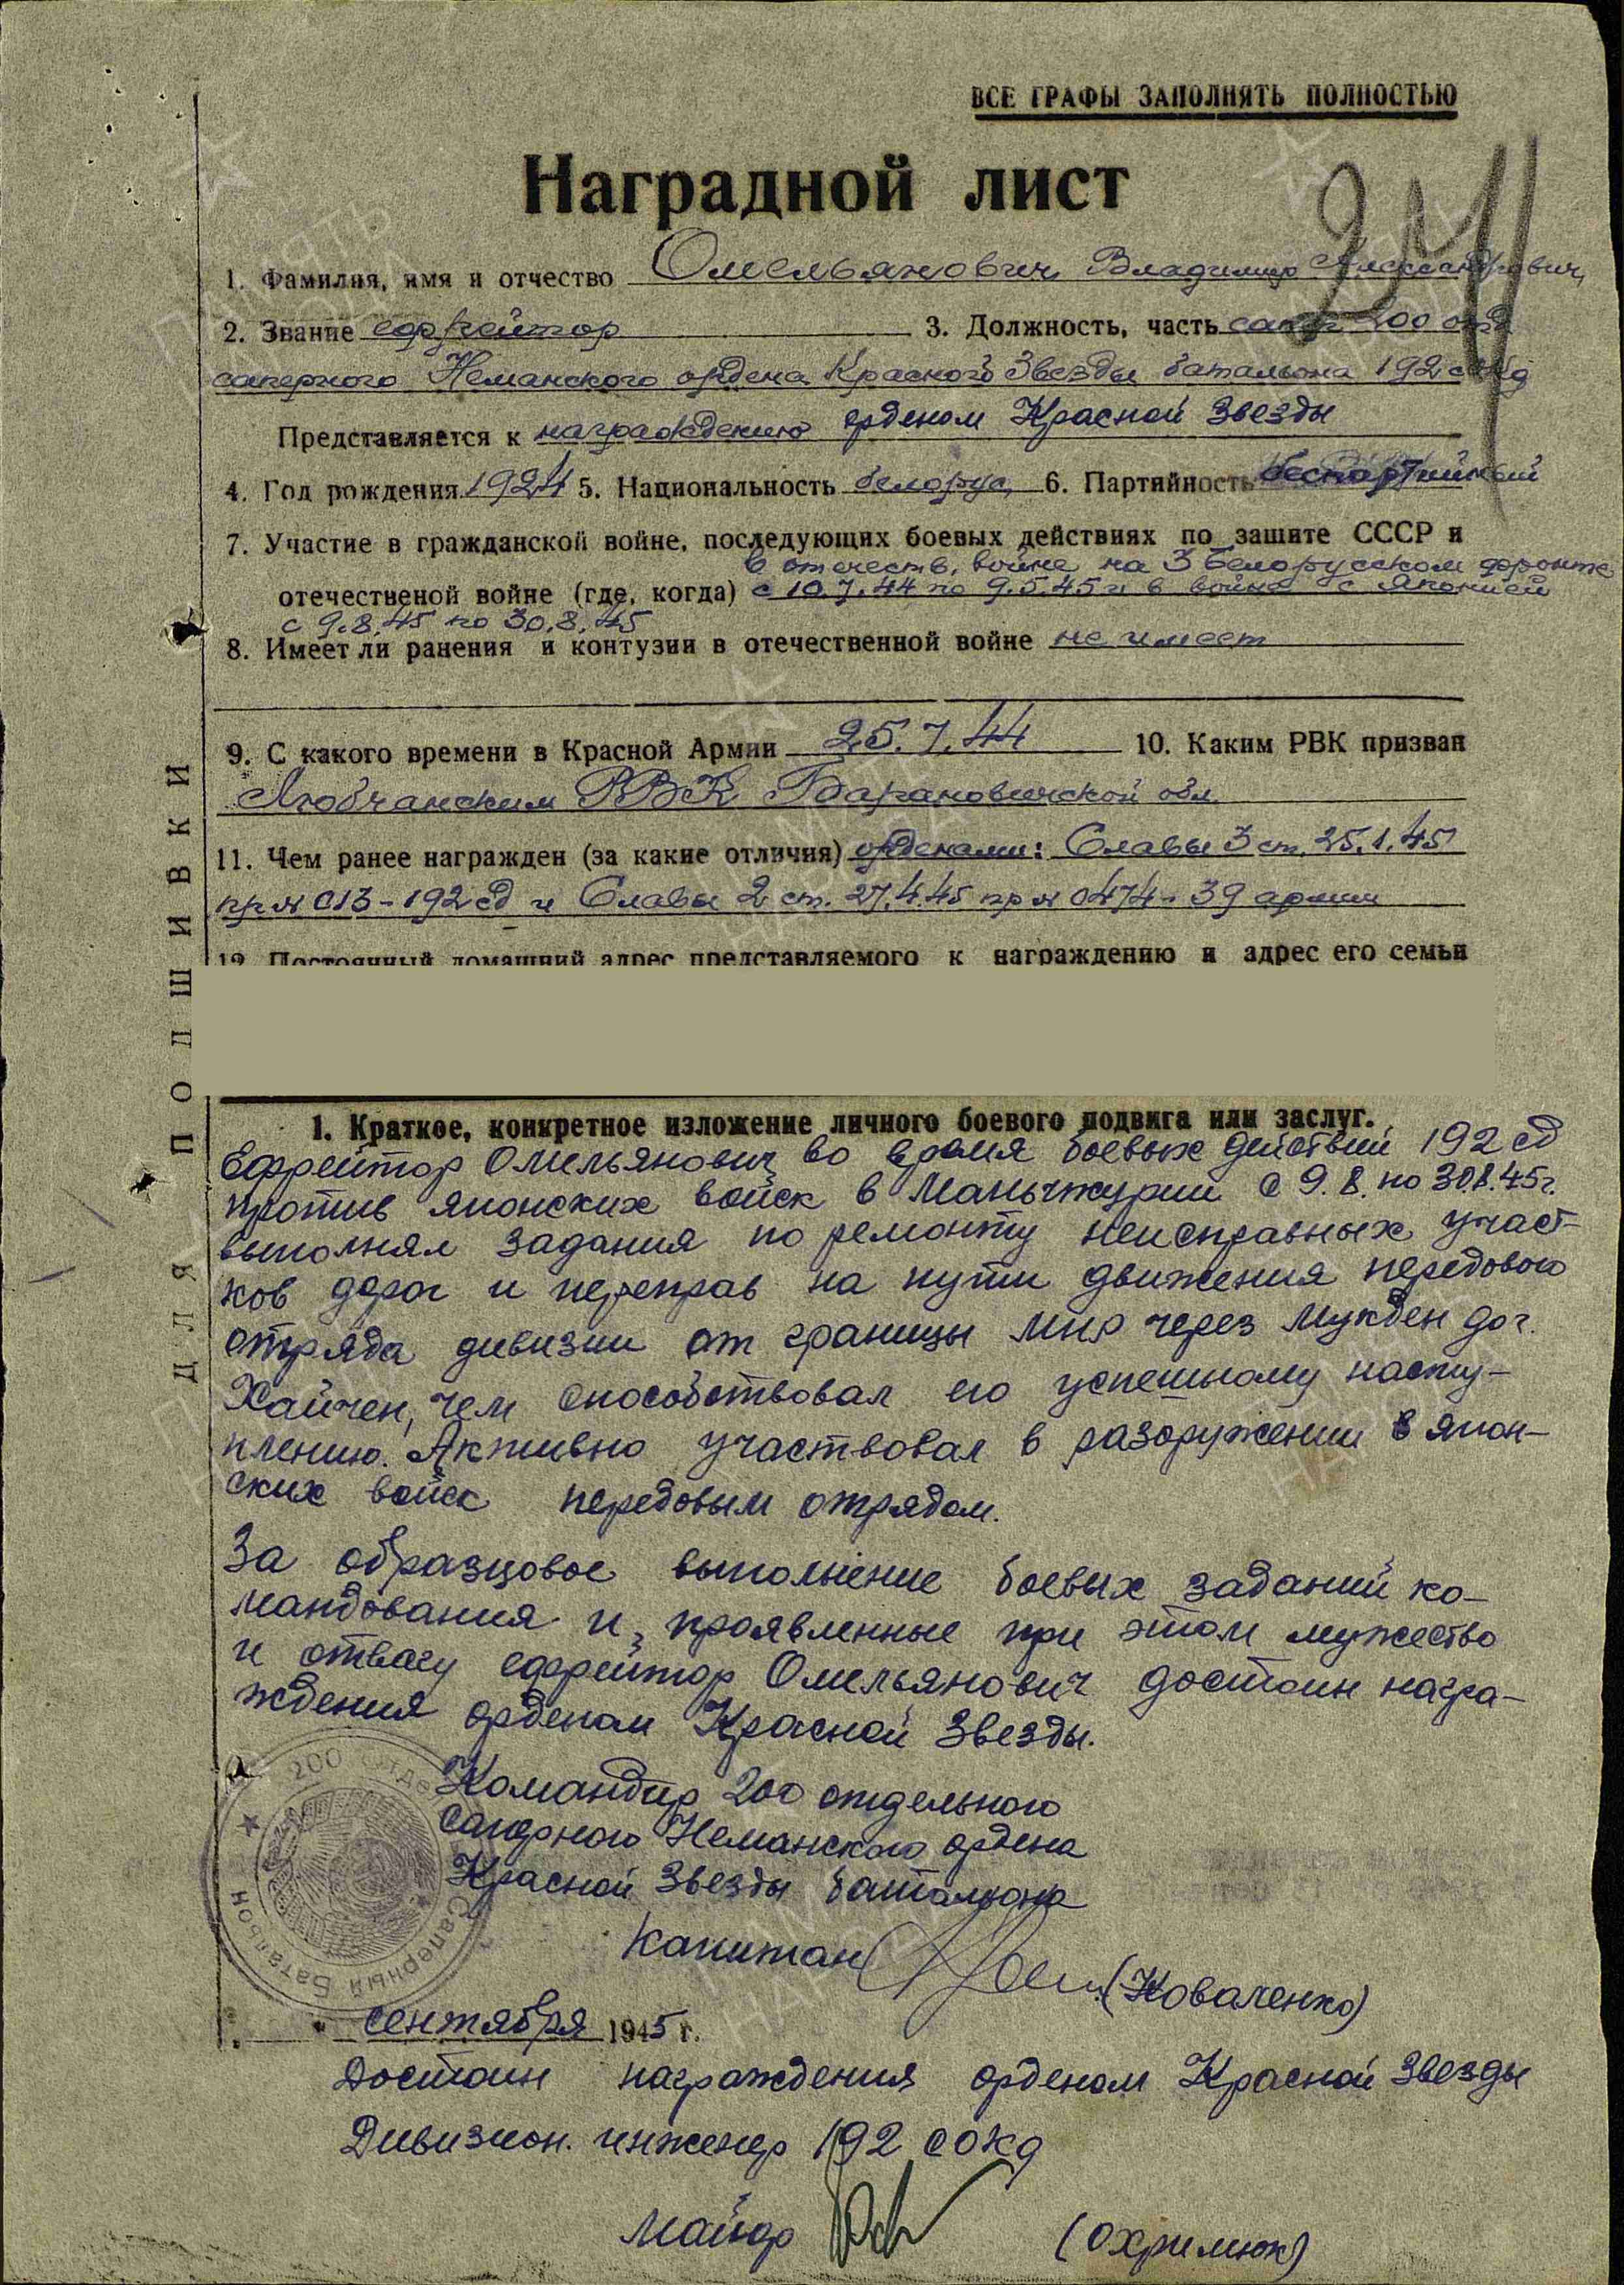 ВСЕ ГРАФЫ ЗАПОЛНЯТЬ ПОЛНОСТЬЮ
Наградной лист
1. Фамилия, имя и отчество Омельянович Владимир Александрович
2. Звание ефрейтор 3. Должность, часть сапер 200 отд
саперного Неманского ордена Красной Звезды батальона 192 сокд
Представляется к награждению орденом Красной Звезды
4. Год рождения 1924 5. Национальность белорус, 6. Партийность беспартийный
7. Участие в гражданской войне, последующих боевых действиях по защите СССР и
в отечеств. войне на 3 Белорусском фронте
отечественой войне (где, когда) с 10.7.44 по 9.5.45 г. в войне с Японией
с 9.8.45 по 30.8.45
8. Имеет ли ранения и контузии в отечественной войне не имеет
9. С какого времени в Красной Армии 25.7.44 10. Каким РВК призван
Любчанским РВК Барановичской обл.
11. Чем ранее награжден (за какие отличия) орденами: Славы 3 ст. 25.1.45
пр № 013-192 сд и Славы 2 ст. 27.4.45 пр № 0474-39 армии
12. Постоянный домашний адрес представляемого к награждению и адрес его семьи
ДЛЯ ПОДШИВКИ
1. Краткое, конкретное изложение личного боевого подвига или заслуг.
Ефрейтор Омельянович во время боевых действий 192 сд
против японских войск в Маньчжурии с 9.8. по 30.8.45г.
выполнял задания по ремонту неисправных участ-
ков дорог и переправ на пути движения передового
отряда дивизии от границы МНР через Мукден до г.
Хайчен, чем способствовал его успешному насту-
плению. Активно участвовал в разоружении в япон-
ских войск передовым отрядом.
За образцовое выполнение боевых заданий ко-
мандования и проявленные при этом мужество
и отвагу ефрейтор Омельянович достоин награ-
ждения орденом Красной Звезды.
Командир 200 отдельного
саперного Неманского ордена
Красной Звезды батальона
капитан (Коваленко)
200 отде Саперный Батальон
сентября 1945 г.
Достоин награждения орденом Красной Звезды
Дивизион. инженер 192 сокд
майор (Охримюк)
ПАМЯТЬ НАРОДА